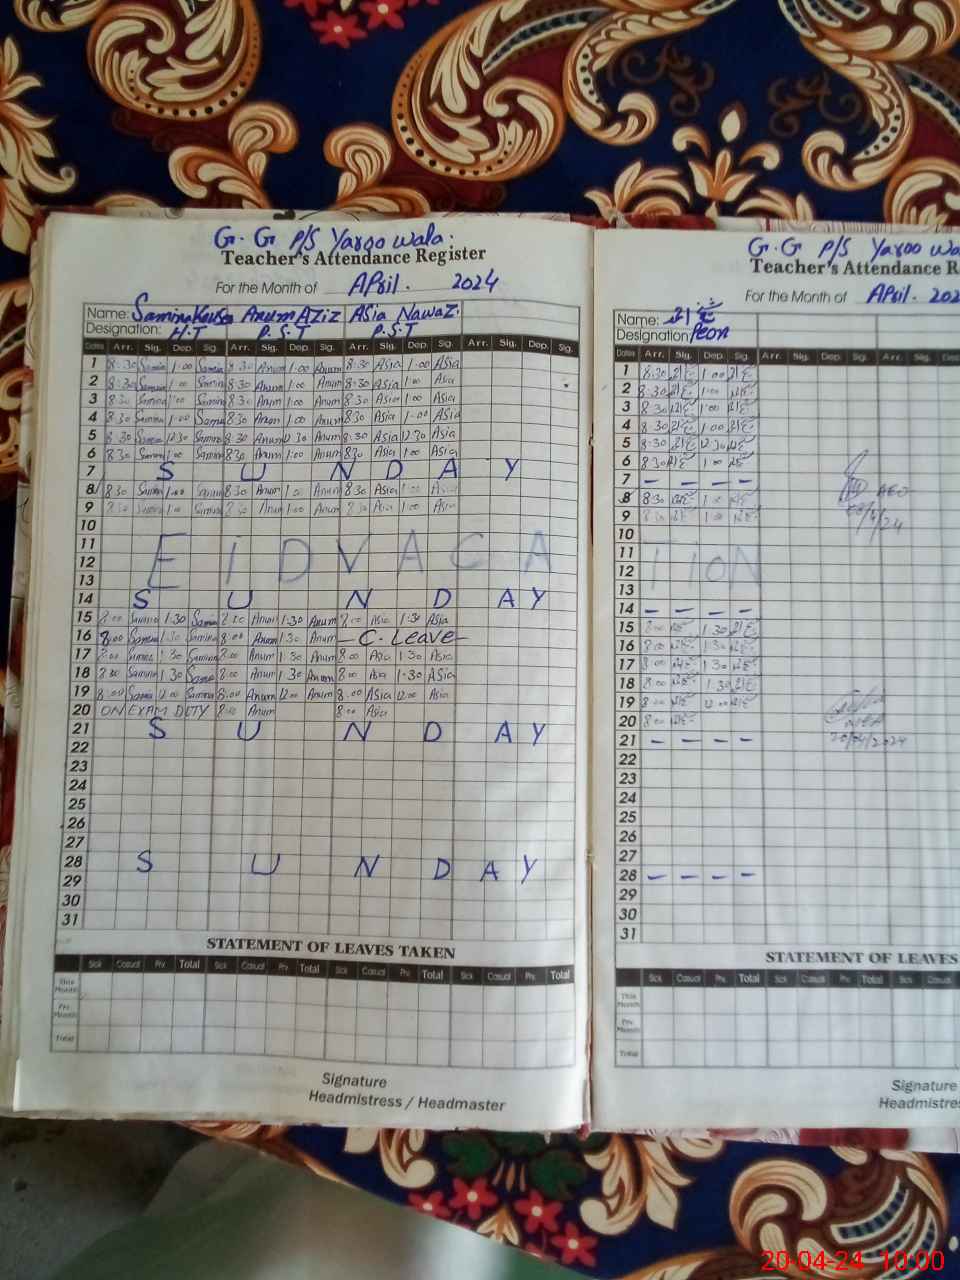 G. G P/S Yaroo wala.
Teacher's Attendance Register
For the Month of APril. 2024
Name: Samina Kausar Anum AZiZ Asia NawaZ.
Designation: H.T P.S.T P.S.T
Dates Arr. Sig. Dep. Sig. Arr. Sig. Dep. Sig. Arr. Sig. Dep. Sig. Arr. Sig. Dep. Sig.
1 8:30 Samina 1:00 Samina 8:30 Anum 1:00 Anum 8:30 Asia 1:00 Asia
2 8:30 Samina 1:00 Samina 8:30 Anum 1:00 Anum 8:30 Asia 1:00 Asia
3 8:30 Samina 1:00 Samina 8:30 Anum 1:00 Anum 8:30 Asia 1:00 Asia
4 8:30 Samina 1:00 Samina 8:30 Anum 1:00 Anum 8:30 Asia 1:00 Asia
5 8:30 Samina 12:30 Samina 8:30 Anum 12:30 Anum 8:30 Asia 12:30 Asia
6 8:30 Samina 1:00 Samina 8:30 Anum 1:00 Anum 8:30 Asia 1:00 Asia
7 S U N D A Y
8 8:30 Samina 1:00 Samina 8:30 Anum 1:00 Anum 8:30 Asia 1:00 Asia
9 8:30 Samina 1:00 Samina 8:30 Anum 1:00 Anum 8:30 Asia 1:00 Asia
10
11
12 E i D V A C A
13
14 S U N D A Y
15 8:00 Samina 1:30 Samina 8:00 Anum 1:30 Anum 8:00 Asia 1:30 Asia
16 8:00 Samina 1:30 Samina 8:00 Anum 1:30 Anum — C. Leave —
17 8:00 Samina 1:30 Samina 8:00 Anum 1:30 Anum 8:00 Asia 1:30 Asia
18 8:00 Samina 1:30 Samina 8:00 Anum 1:30 Anum 8:00 Asia 1:30 Asia
19 8:00 Samina 12:00 Samina 8:00 Anum 12:00 Anum 8:00 Asia 12:00 Asia
20 ON EXAM DUTY 8:00 Anum 8:00 Asia
21 S U N D A Y
22
23
24
25
26
27
28 S U N D A Y
29
30
31
STATEMENT OF LEAVES TAKEN
Sick Casual Prv. Total Sick Casual Prv. Total Sick Casual Prv. Total Sick Casual Prv. Total
This Month
Prv. Month
Total
Signature
Headmistress / Headmaster
G. G P/S Yaroo wa
Teacher's Attendance R
For the Month of APril. 202
Name:
Designation: Peon
Dates Arr. Sig. Dep. Sig. Arr. Sig. Dep. Sig. Arr. Sig.
1 8:30 1:00
2 8:30 1:00
3 8:30 1:00
4 8:30 1:00
5 8:30 12:30
6 8:30 1:00
7 — — — —
8 8:30 1:00 AEO
9 8:30 1:00
10
11
12 T I O N
13
14 — — — —
15 8:00 1:30
16 8:00 1:30
17 8:00 1:30
18 8:00 1:30
19 8:00 12:00
20 8:00
21 — — — — 20/04/2024
22
23
24
25
26
27
28 — — — —
29
30
31
STATEMENT OF LEAVES
Sick Casual Prv. Total Sick Casual Prv. Total Sick Casual
This Month
Prv. Month
Total
Signature
Headmistres
20-04-24 10:00